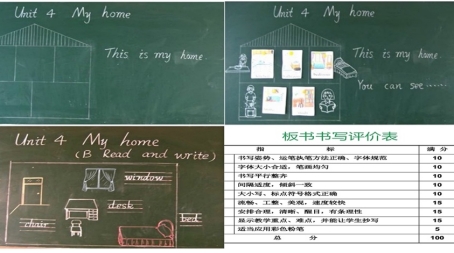 Unit 4 My home
This is my home.
Unit 4 My home
This is my home.
You can see······
Unit 4 My home
(B Read and write)
window
desk
chair
bed
板书书写评价表
指 标 满 分
书写姿势、运笔执笔方法正确、字体规范 10
字体大小合适，笔画均匀 10
书写平行整齐 10
间隔适度，倾斜一致 10
大小写、标点符号格式正确 10
流畅、工整、美观，速度较快 15
安排合理，清晰、醒目，有条理性 15
显示教学重点、难点，并能让学生抄写 15
适当应用彩色粉笔 5
总 分 100